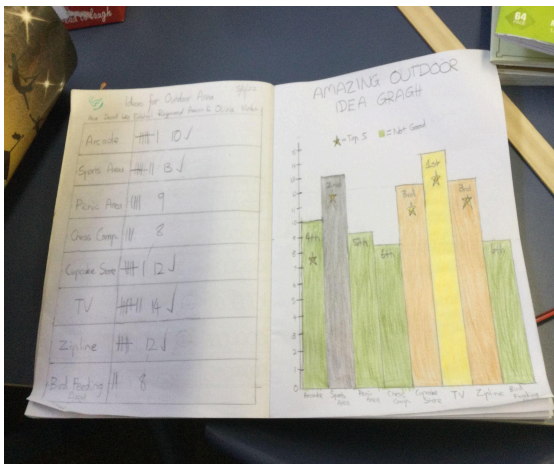 to laugh
64
Ideas for Outdoor Area
Arcade 10 ✓
Sports Area 13 ✓
Picnic Area 9
Chess Comp. 8
Cupcake Store 12 ✓
TV 14 ✓
Zipline 12 ✓
Bird Feeding 8
AMAZING OUTDOOR
IDEA GRAGH
= Top 5 = Not Good
1st
2nd
3rd 3rd
4th
5th
6th 6th
Arcade Sports Area Picnic Area Chess Comp. Cupcake Store TV Zipline Bird Feeding